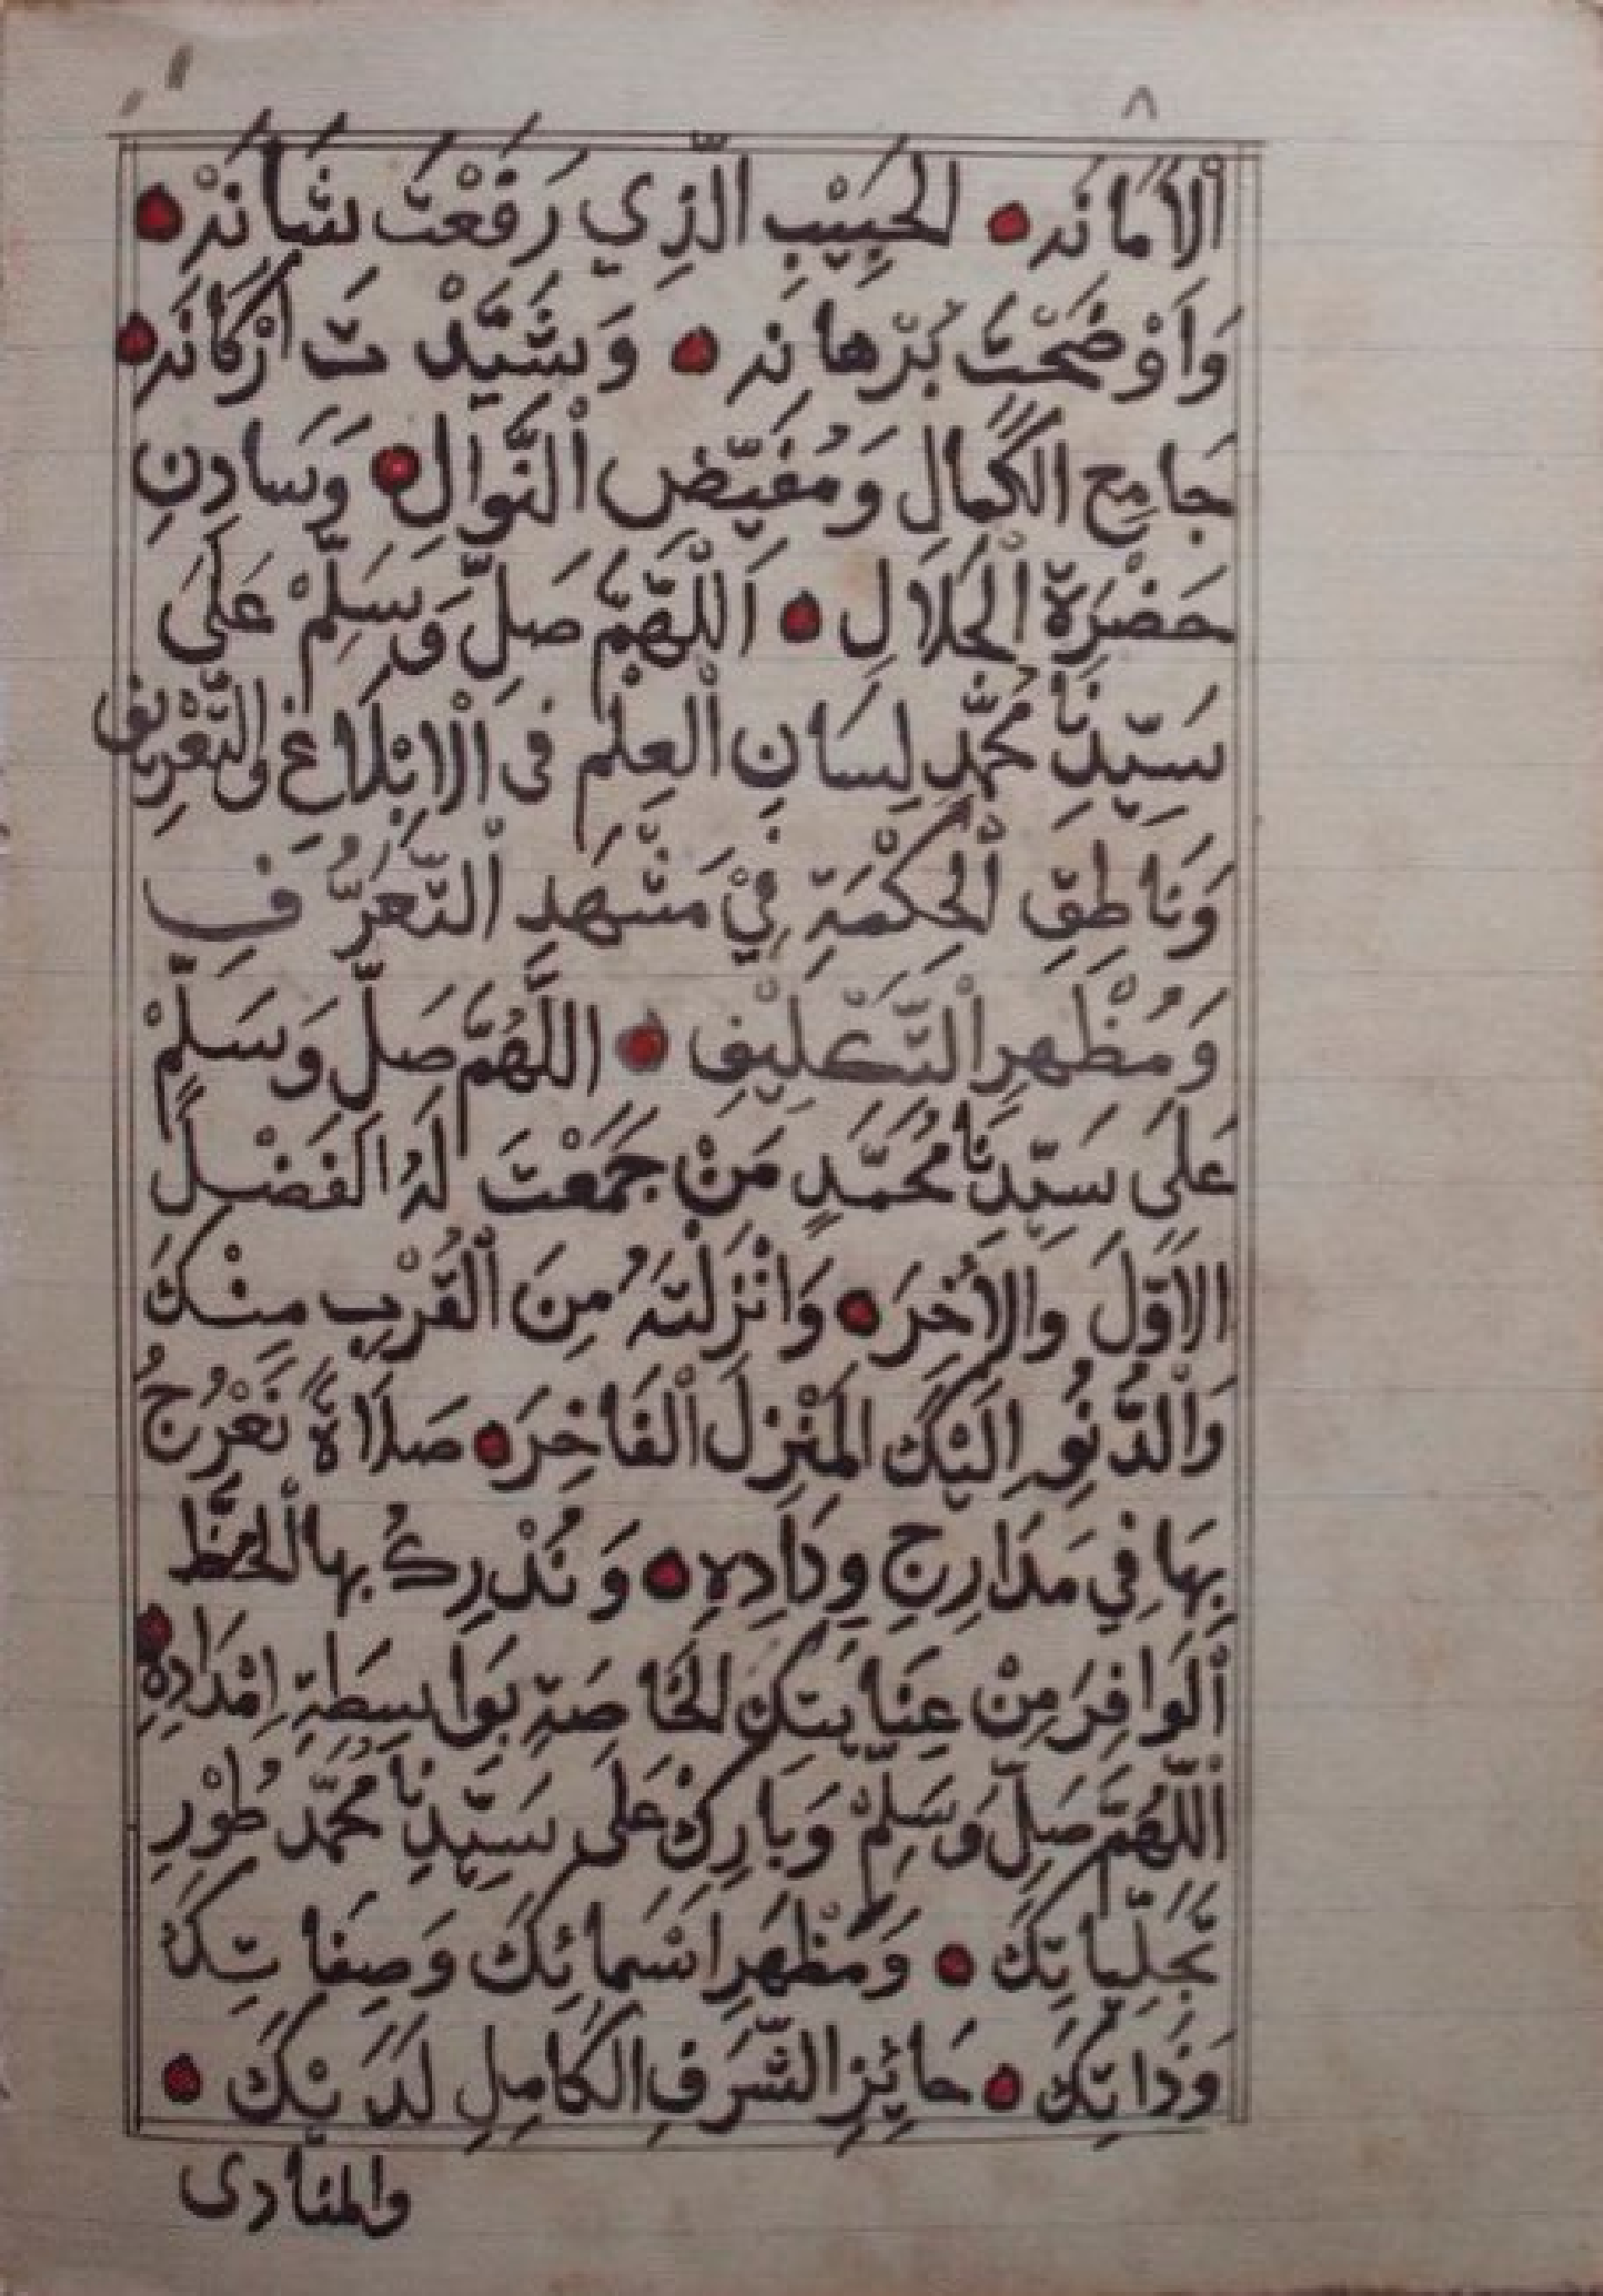 ٨
اْلاَمَانَه ● الحَبِيْبِ الَّذِي رَفَعْتَ شَانَهْ ●
وَاَوْضَحْتَ بُرْهَانَه ● وَشَيَّدْتَ اَرْكَانَه ●
جَامِعِ الكَمَالِ وَمُفَيِّضِ اْلنَّوَالِ ● وَسَادِنِ
حَضْرَةِ اْلجَلَالِ ● اَللّٰهُمَّ صَلِّ وَسَلِّمْ عَلَى
سَيِّدِنَا مُحَمَّدٍ لِسَانِ اْلعِلْمِ فى اْلاِبْلَاغِ والتَّعْرِيْفِ
وَنَاطِقِ اْلحِكْمَةِ فِيْ مَشْهَدِ اْلتَّعَرُّفِ
وَمُظْهِرِ اْلتَّكْلِيْفِ ● اللّٰهُمَّ صَلِّ وَسَلِّمْ
عَلَى سَيِّدِنَا مُحَمَّدٍ مَنْ جَمَعْتَ لَهُ الفَضْلَ
الاَوَّلَ والاَخِرَ ● وَاَنْزَلْتَهُ مِنَ اْلقُرْبِ مِنْكَ
وَاْلدُّنُوِّ اِلَيْكَ المَنْزِلَ اْلفَاخِرَ ● صَلَاةً نَعْرُجُ
بِهَا فِي مَدَارِجِ وِدَادِهِ ● وَنُدْرِكُ بِها اْلحَظَّ
اْلوَافِرَ مِنْ عِنَايَتِكَ الخَاصَّةِ بِوَاسِطَةِ اِمْدَادِهِ ●
اَللّٰهُمَّ صَلِّ وَسَلِّمْ وَبَارِكْ عَلَى سَيِّدِنَا مُحَمَّد طُوْرِ
تَجَلِّيَاتِكَ ● وَمَظْهَرِ اَسْمَائِكَ وَصِفَاتِكَ
وَذَاتِكَ ● حَائِزِ الشَّرَفِ الكَامِلِ لَدَيْكَ ●
والمنادى